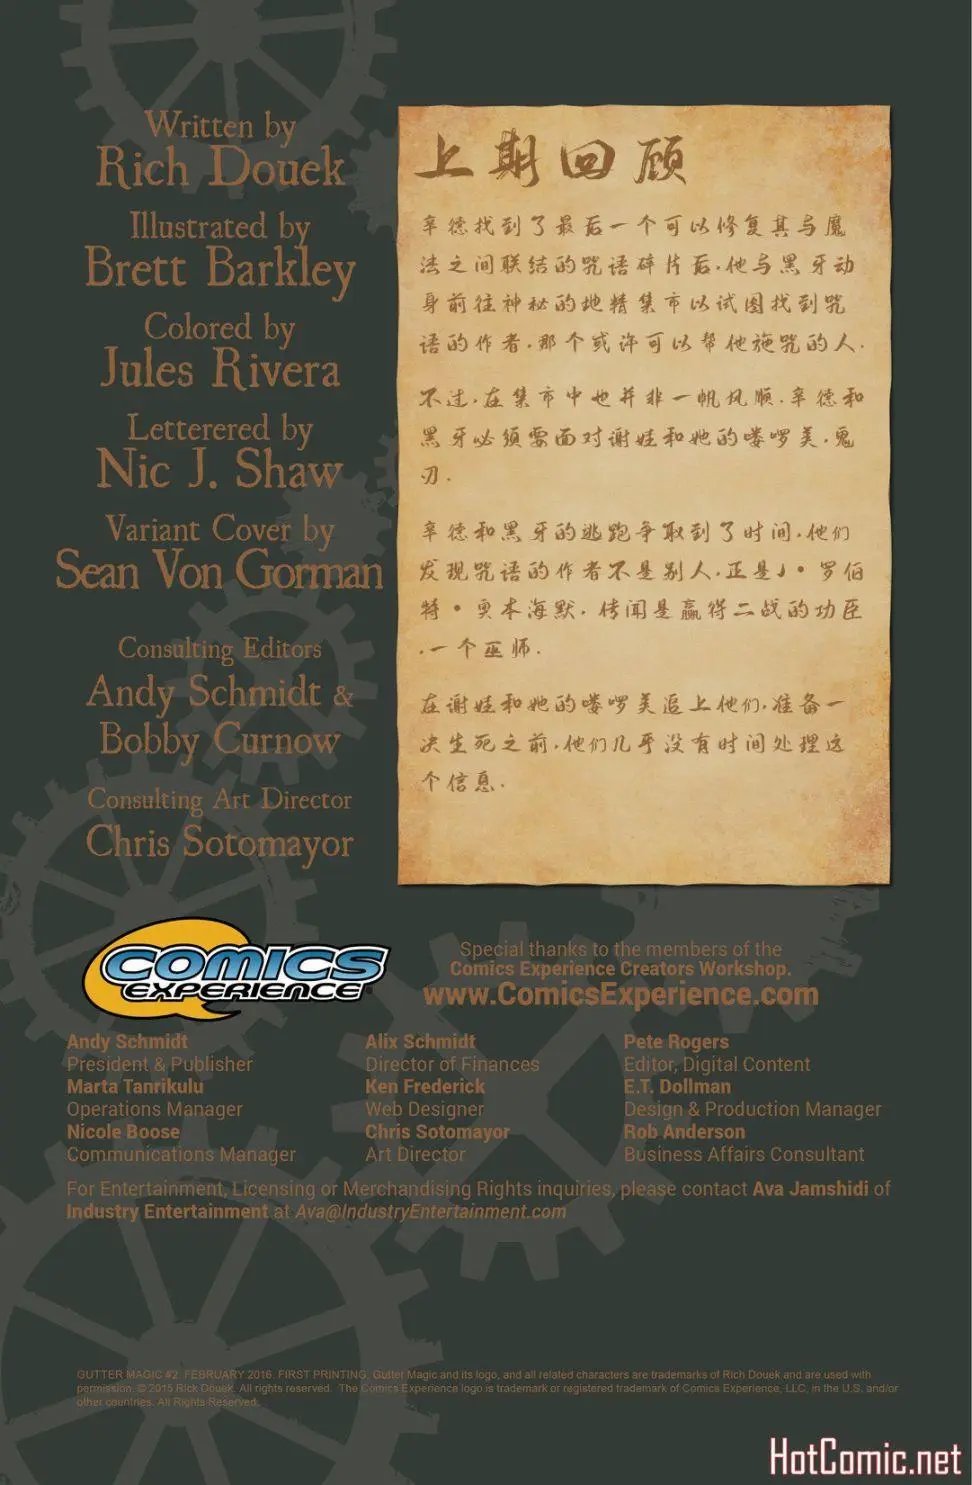 Written by
Rich Douek
Illustrated by
Brett Barkley
Colored by
Jules Rivera
Letterered by
Nic J. Shaw
Variant Cover by
Sean Von Gorman
Consulting Editors
Andy Schmidt &
Bobby Curnow
Consulting Art Director
Chris Sotomayor
上期回顾
辛德找到了最后一个可以修复其与魔
法之间联结的咒语碎片后,他与黑牙动
身前往神秘的地精集市以试图找到咒
语的作者,那个或许可以帮他施咒的人.
不过,在集市中也并非一帆风顺,辛德和
黑牙必须需面对谢娃和她的喽啰美,鬼
刃.
辛德和黑牙的逃跑争取到了时间,他们
发现咒语的作者不是别人,正是J·罗伯
特·奥本海默,传闻是赢得二战的功臣
,一个巫师.
在谢娃和她的喽啰美追上他们,准备一
决生死之前,他们几乎没有时间处理这
个信息.
COMICS
EXPERIENCE
Special thanks to the members of the
Comics Experience Creators Workshop.
www.ComicsExperience.com
Andy Schmidt
President & Publisher
Marta Tanrikulu
Operations Manager
Nicole Boose
Communications Manager
Alix Schmidt
Director of Finances
Ken Frederick
Web Designer
Chris Sotomayor
Art Director
Pete Rogers
Editor, Digital Content
E.T. Dollman
Design & Production Manager
Rob Anderson
Business Affairs Consultant
For Entertainment, Licensing or Merchandising Rights inquiries, please contact Ava Jamshidi of
Industry Entertainment at Ava@IndustryEntertainment.com
GUTTER MAGIC #2. FEBRUARY 2016. FIRST PRINTING. Gutter Magic and its logo, and all related characters are trademarks of Rich Douek and are used with
permission. © 2015 Rick Douek. All rights reserved. The Comics Experience logo is trademark or registered trademark of Comics Experience, LLC, in the U.S. and/or
other countries. All Rights Reserved.
HotComic.net